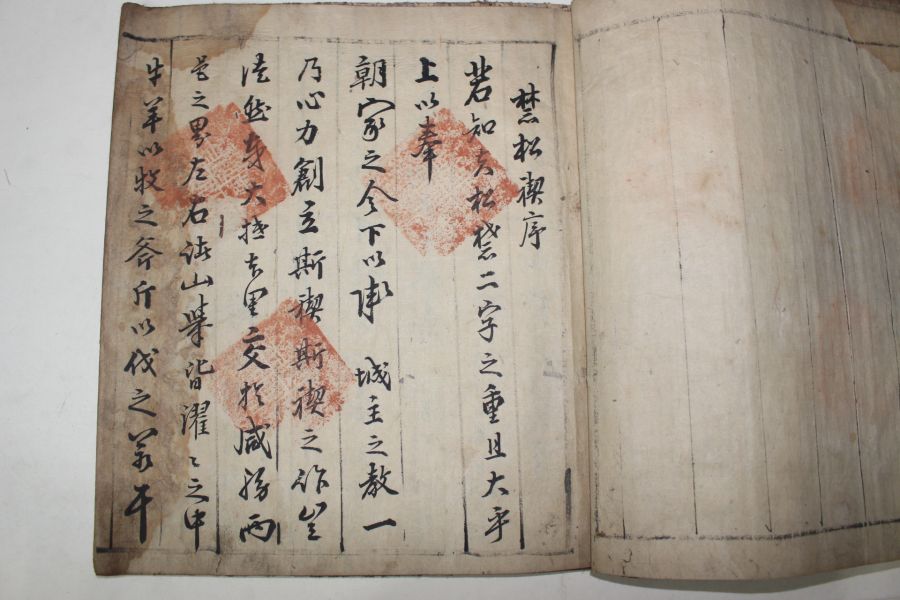 禁松禊序
若知夫松禁二字之重且大乎
上以奉
朝家之令下以承 城主之教一
乃心力創立斯禊斯禊之作豈
徒然哉大抵里交於咸兩
邑之界左右諸山舉皆濯〻之中
牛羊以牧之斧斤以伐之若干